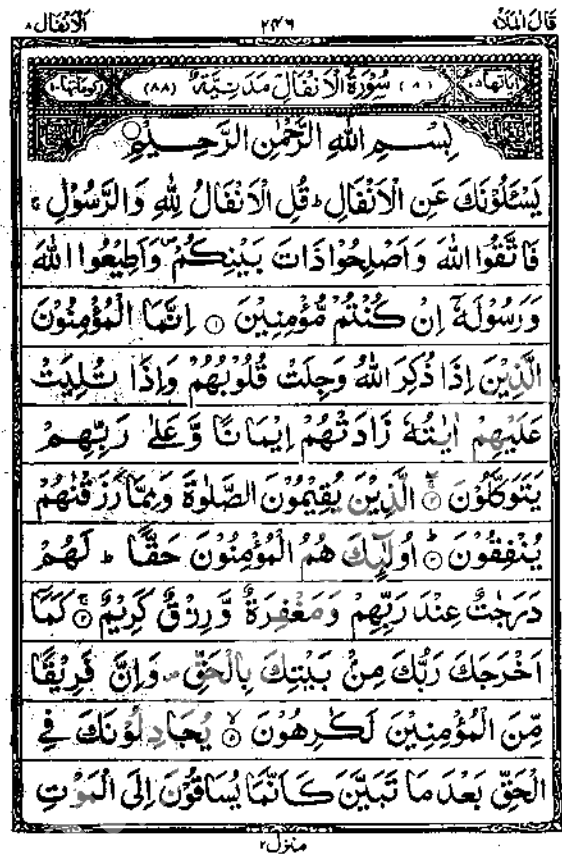 قَالَ الْمَلَاُ ٩
٢٤٦
اَلْاَنْفَال ٨
اٰيَاتُهَا ٧٥
(٨) سُوْرَةُ الْاَنْفَالِ مَدَنِيَّةٌ (٨٨)
رُكُوْعَاتُهَا ١٠
بِسْمِ اللهِ الرَّحْمٰنِ الرَّحِيْمِ
يَسْـَٔلُوْنَكَ عَنِ الْاَنْفَالِ ؕ قُلِ الْاَنْفَالُ لِلّٰهِ وَالرَّسُوْلِ ۚ
فَاتَّقُوا اللهَ وَاَصْلِحُوْا ذَاتَ بَيْنِكُمْ ۪ وَاَطِيْعُوا اللهَ
وَرَسُوْلَهٗۤ اِنْ كُنْتُمْ مُّؤْمِنِيْنَ ﴿۱﴾ اِنَّمَا الْمُؤْمِنُوْنَ
الَّذِيْنَ اِذَا ذُكِرَ اللهُ وَجِلَتْ قُلُوْبُهُمْ وَاِذَا تُلِيَتْ
عَلَيْهِمْ اٰيٰتُهٗ زَادَتْهُمْ اِيْمَانًا وَّعَلٰى رَبِّهِمْ
يَتَوَكَّلُوْنَ ﴿۲﴾ الَّذِيْنَ يُقِيْمُوْنَ الصَّلٰوةَ وَمِمَّا رَزَقْنٰهُمْ
يُنْفِقُوْنَ ﴿۳﴾ اُولٰٓئِكَ هُمُ الْمُؤْمِنُوْنَ حَقًّا ؕ لَهُمْ
دَرَجٰتٌ عِنْدَ رَبِّهِمْ وَمَغْفِرَةٌ وَّرِزْقٌ كَرِيْمٌ ﴿۴﴾ كَمَاۤ
اَخْرَجَكَ رَبُّكَ مِنْۢ بَيْتِكَ بِالْحَقِّ ۪ وَاِنَّ فَرِيْقًا
مِّنَ الْمُؤْمِنِيْنَ لَكٰرِهُوْنَ ﴿۵﴾ يُجَادِلُوْنَكَ فِى
الْحَقِّ بَعْدَ مَا تَبَيَّنَ كَاَنَّمَا يُسَاقُوْنَ اِلَى الْمَوْتِ
منزل ٢